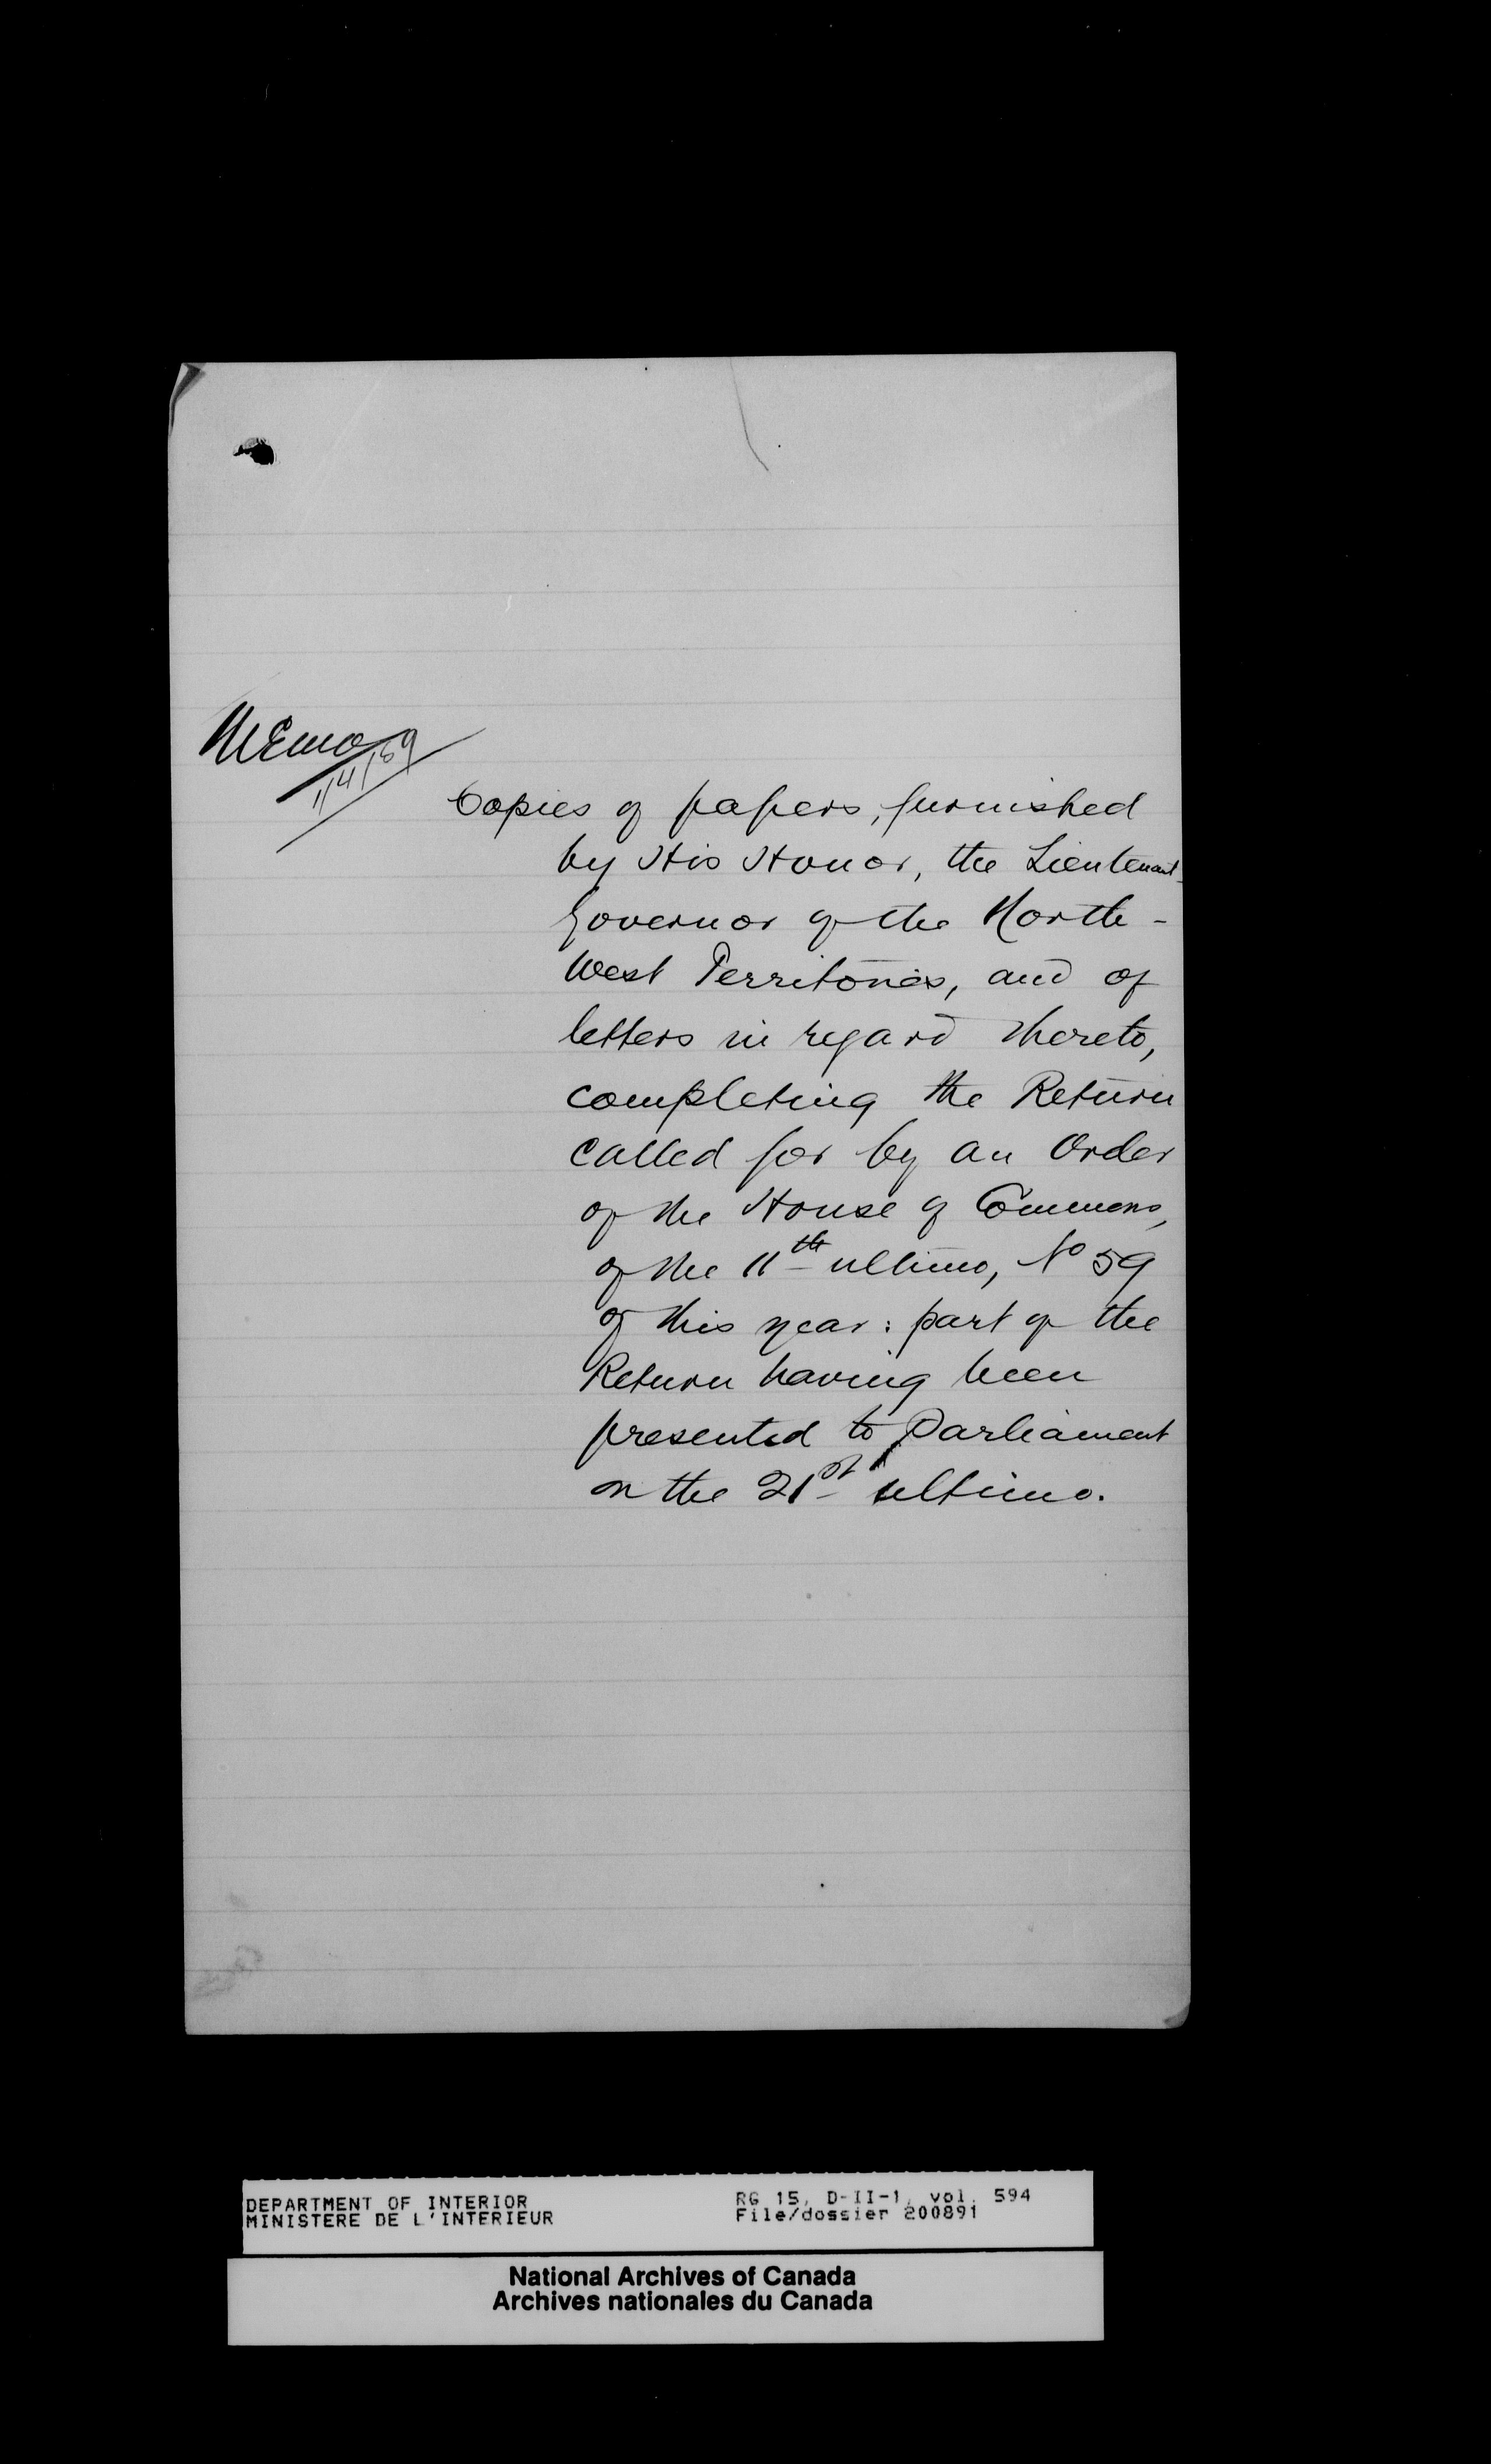 Memo
11/4/89
Copies of papers, furnished
by His Honor, the Lieutenant-
Governor of the North-
West Territories, and of
letters in regard thereto,
completing the Return
called for by an Order
of the House of Commons,
of the 11th ultimo, No 59
of this year: part of the
Return having been
presented to Parliament
on the 21st ultimo.
DEPARTMENT OF INTERIOR
MINISTERE DE L'INTERIEUR
RG 15, D-II-1, vol. 594
File/dossier 200891
National Archives of Canada
Archives nationales du Canada